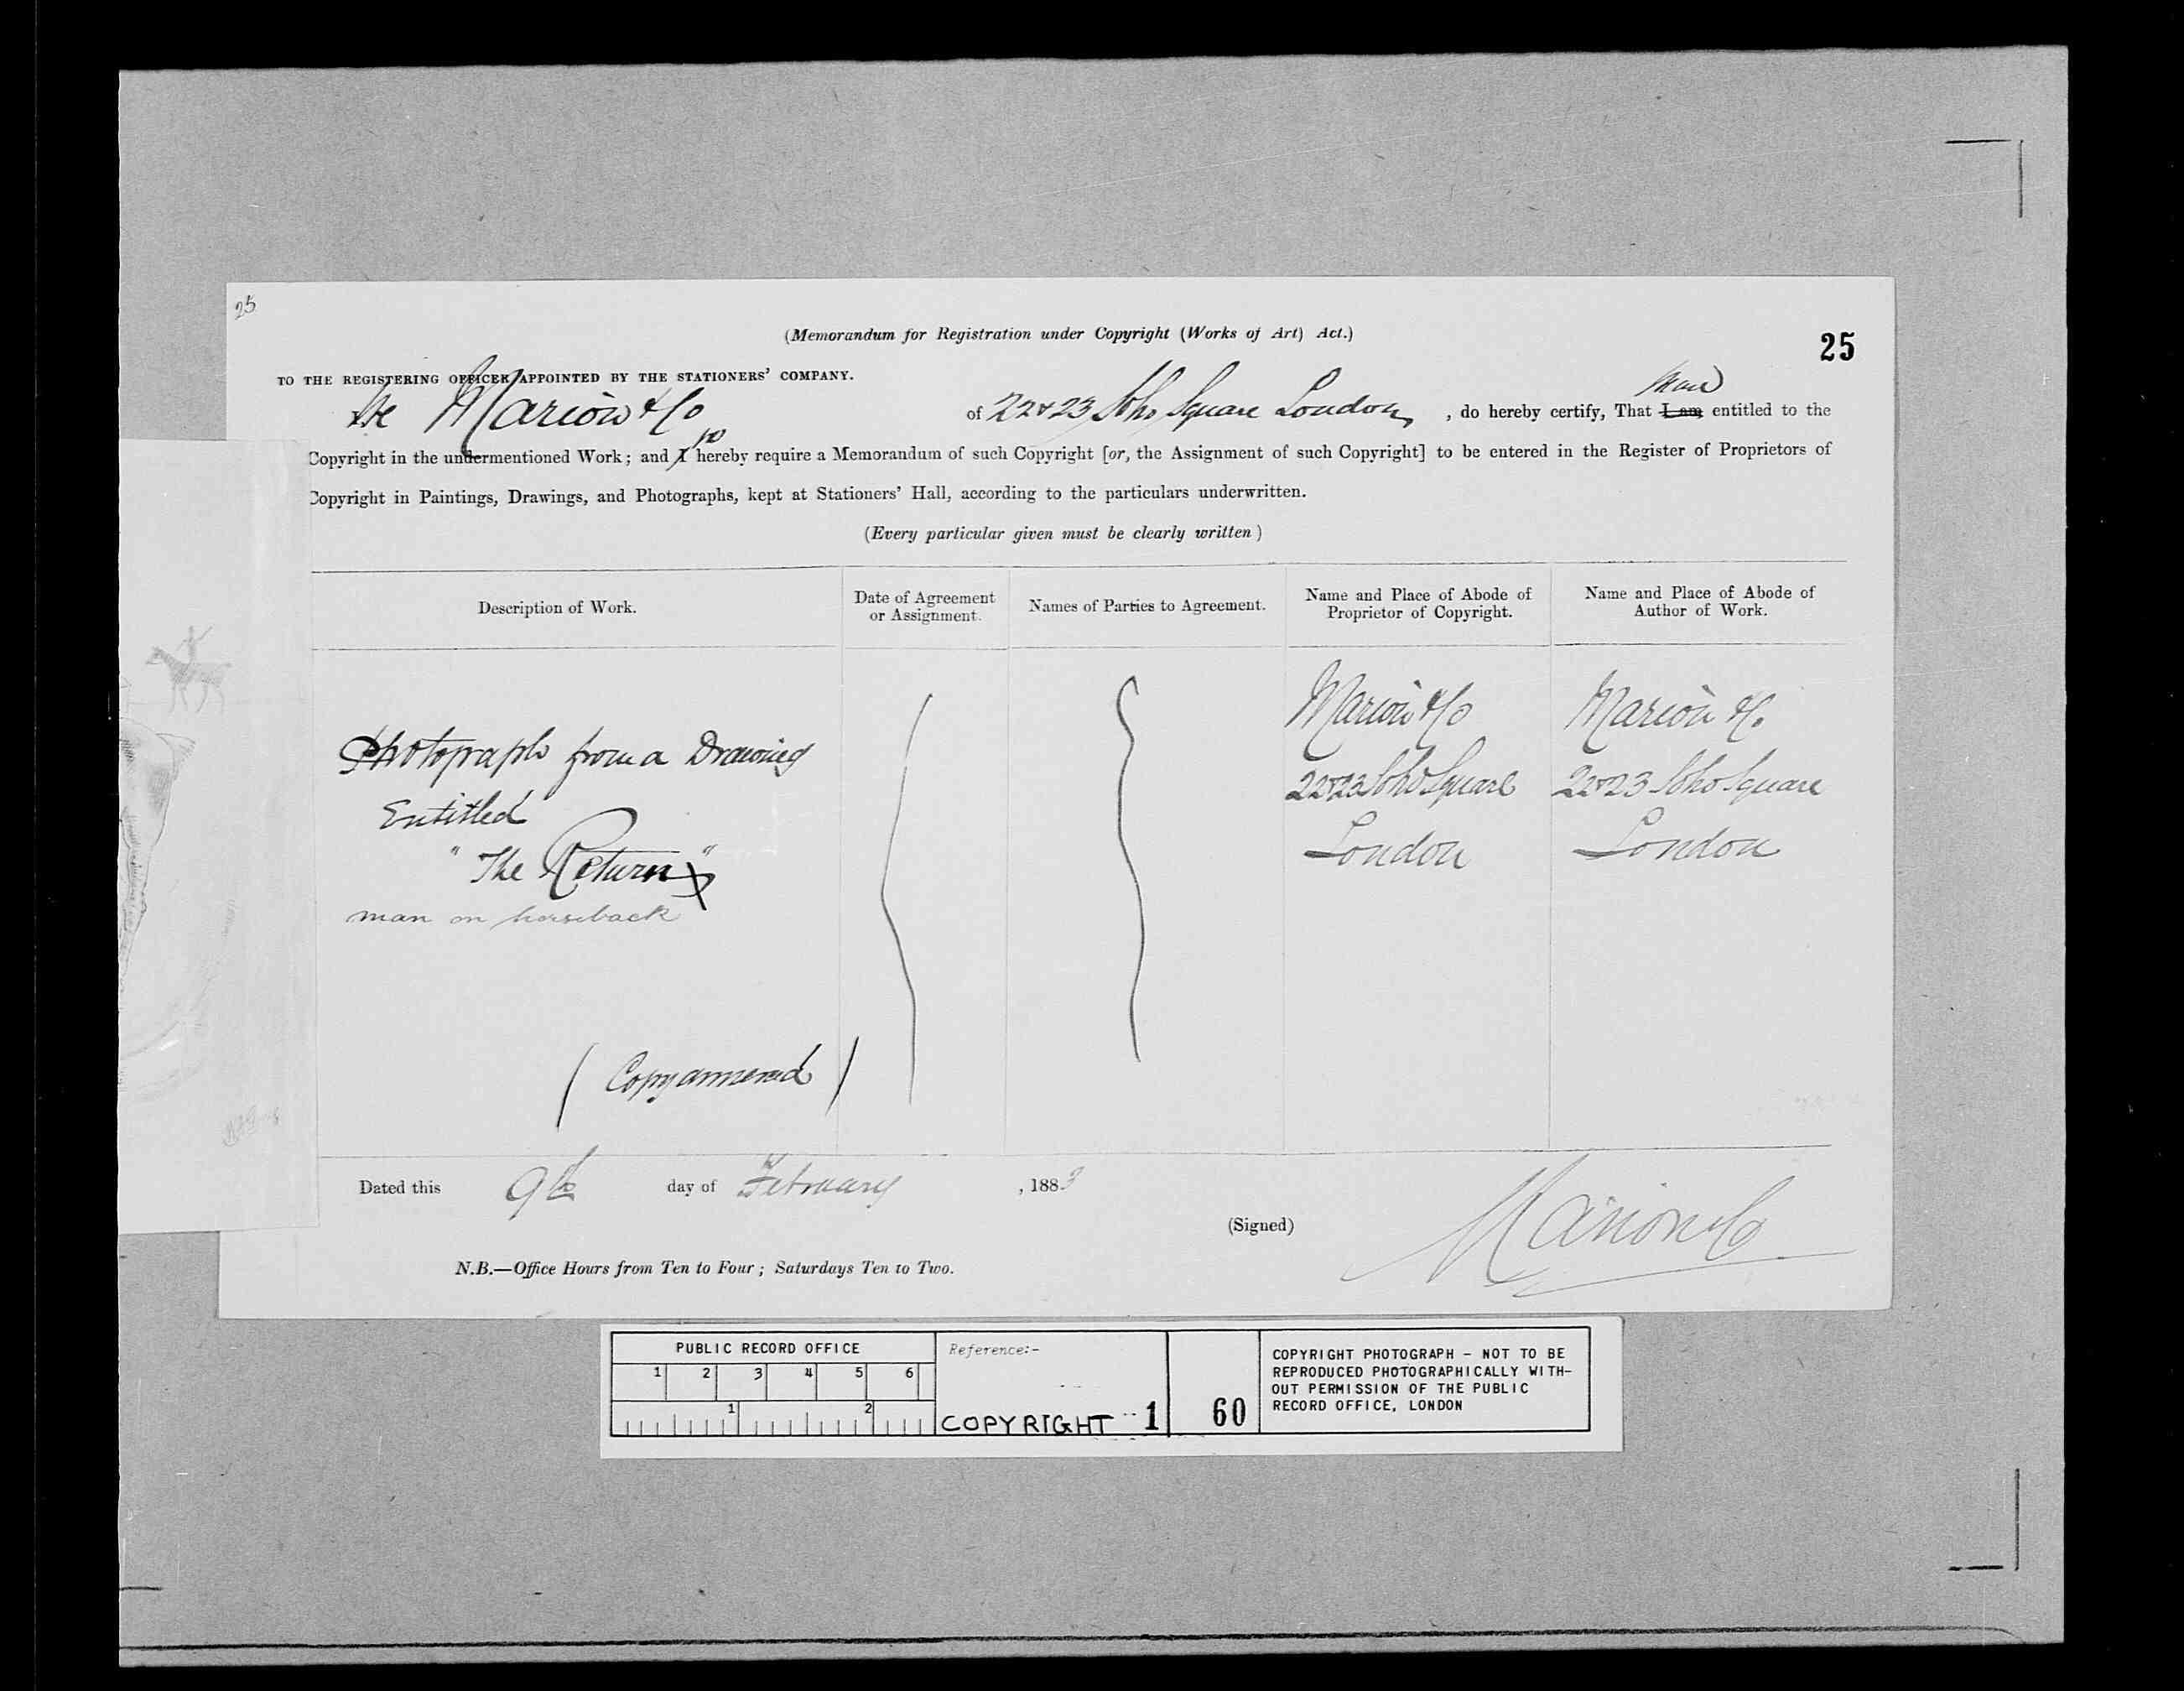 25
(Memorandum for Registration under Copyright (Works of Art) Act.)
25
TO THE REGISTERING OFFICER APPOINTED BY THE STATIONERS' COMPANY.
We Marion & Co of 22 & 23 Soho Square London, do hereby certify, That I am entitled to the
Copyright in the undermentioned Work; and I hereby require a Memorandum of such Copyright [or, the Assignment of such Copyright] to be entered in the Register of Proprietors of
Copyright in Paintings, Drawings, and Photographs, kept at Stationers' Hall, according to the particulars underwritten.
(Every particular given must be clearly written)
Description of Work.
Date of Agreement
or Assignment.
Names of Parties to Agreement.
Name and Place of Abode of
Proprietor of Copyright.
Name and Place of Abode of
Author of Work.
Photograph from a Drawing
Entitled
"The Return"
man on horseback
(Copy annexed)
Marion & Co
22 & 23 Soho Square
London
Marion & Co
22 & 23 Soho Square
London
Dated this 9th day of February, 1883
(Signed) Marion & Co
N.B.—Office Hours from Ten to Four; Saturdays Ten to Two.
PUBLIC RECORD OFFICE
1 2 3 4 5 6
1 2
Reference:-
COPYRIGHT 1 60
COPYRIGHT PHOTOGRAPH - NOT TO BE
REPRODUCED PHOTOGRAPHICALLY WITH-
OUT PERMISSION OF THE PUBLIC
RECORD OFFICE, LONDON